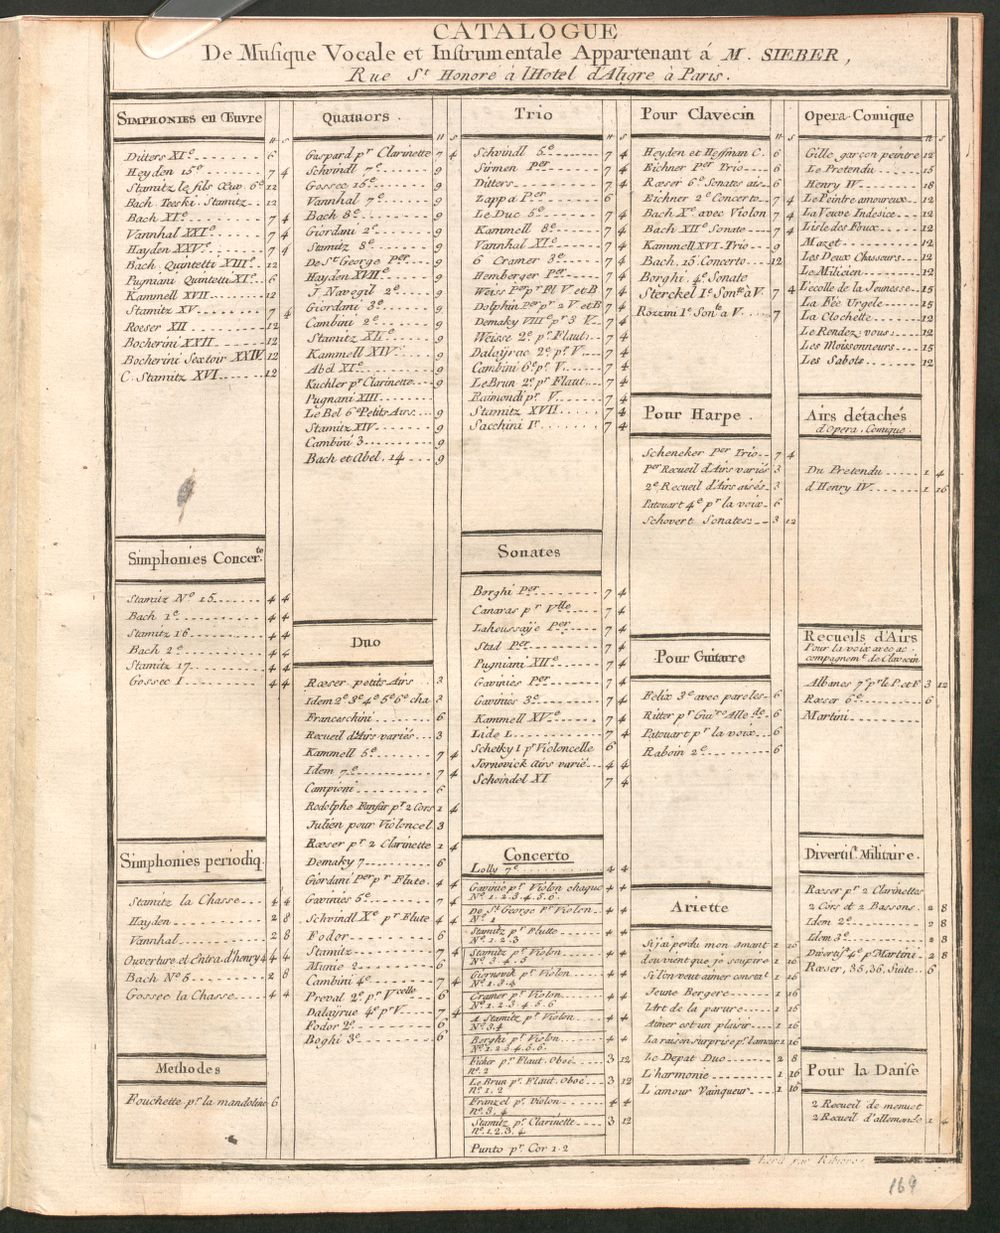 CATALOGUE
De Musique Vocale et Instrumentale Appartenant á M. SIEBER,
Rue St. Honore à l'Hotel d'Aligre à Paris.
SIMPHONIES en Œuvre # s
Ditters XIe 6
Heyden 15e 7 4
Stamitz le fils Œuv. 6e 12
Bach Teeski Stamitz 12
Bach XIe 7 4
Vannhal XXIe 7 4
Hayden XXVe 7 4
Bach Quintetti XIIIe 12
Pugniani Quintetti XIe 6
Kammell XVII 12
Stamitz XV 7 4
Roeser XII 12
Bocherini XXII 12
Bocherini Sextoir XXIV 12
C. Stamitz XVI 12
Simphonies Concer.te
Stamitz No 15 4 4
Bach 1e 4 4
Stamitz 16 4 4
Bach 2e 4 4
Stamitz 17 4 4
Gossec I 4 4
Simphonies periodiq.
Stamitz la Chasse 4 4
Hayden 2 8
Vannhal 2 8
Ouverture et Entra. d'henry 4 4 4
Bach No 5 2 8
Gossec la Chasse 4 4
Methodes
Fouchette pr. la mandoline 6
Quatuors. # s
Gaspard pr Clarinette 7 4
Schvindl 7e 9
Gossec 15e 9
Vannhal 7e 9
Bach 8e 9
Giordani 2e 9
Stamitz 8e 9
De St George Per 9
Hayden XVIIe 9
J. Navogil 2e 9
Giordani 3e 9
Cambini 2e 9
Stamitz XIIe 9
Kammell XIVe 9
Abel XIe 9
Kuchler pr Clarinette 9
Pugnani XIII
Le Bel 6e Petits Airs 9
Stamitz XIV 9
Cambini 3 9
Bach et Abel. 14 9
Duo
Rœser petits Airs 3
Idem 2e 3e 4e 5e 6e cha 3
Franceschini 6
Recueil d'Airs variés 3
Kammell 5e 7 4
Idem 7e 7 4
Campioni 6
Rodolphe Fanfar pr 2 Cors 1 4
Julien pour Violoncel 3
Rœser pr 2 Clarinette 1 4
Demaky 7 6
Giordani Per pr Flute 4 4
Gaviniés 5e 7 4
Schvindl Xe pr Flute 4 4
Fodor 6
Stamitz 7 4
Minie 2 6
Cambini 4e 7 4
Preval 2e pr Vcelle 6
Dalaÿrue 4e pr V 7 4
Fodor 2e 6
Boghi 3e 6
Trio # s
Schvindl 5e 7 4
Sirmen Per 7 4
Ditters 7 4
Zappa Per 6
Le Duc 5e 7 4
Kammell 8e 7 4
Vannhal XIe 7 4
6 Cramer 3e 7 4
Hemberger Per 7 4
Weiss Per pr Fl V et B 7 4
Dolphin Per pr 2 V et B 7 4
Demaky VIIIe pr 3 V 7 4
Weisse 2e pr. Flaut 7 4
Dalaÿrac 2e pr. V 7 4
Cambini 6e pr. V 7 4
Le Brun 2e pr. Flaut 7 4
Raimondi pr. V 7 4
Stamitz XVII 7 4
Sacchini Ir 7 4
Sonates
Borghi Per 7 4
Canaras pr Vlle 7 4
Lahoussaÿe Per 7 4
Stad Per 7 4
Pugniani XIIe 7 4
Gaviniés Per 7 4
Gavinies 3e 7 4
Kammell XVe 7 4
Lide I 7 4
Schetky 1 pr Violoncelle 6
Jornovick airs varié 4 4
Scheindel XI 7 4
Concerto
Lolly 7e 4 4
Gavinie pr. Violon chaque 4 4
No 1. 2. 3. 4. 5. 6.
De St George Pr Violon 4 4
No 1
Stamitz pr. Flutte 4 4
No 1. 2. 3
Stamitz pr. Violon 4 4
No 3. 4. 5
Giornovik pr. Violon 4 4
No 1. 3. 4
Cramer pr. Violon 4 4
No 1. 2. 3. 4. 5. 6
A Stamitz pr. Violon 4 4
No 3. 4
Borghi pr. Violon 4 4
No 1. 2. 3. 4. 5. 6.
Ficher pr. Flaut. Oboé 3 12
no. 2
Le Brun pr. Flaut. Oboé 3 12
no. 1. 2
Franzel pr. Violon 4 4
no. 3. 4
Stamitz pr. Clarinette 3 12
no. 1. 2. 3. 4
Punto pr. Cor 1. 2
Pour Clavecin # s
Heyden et Heffman C. 6
Eichner Per Trio 6
Rœser 6e Sonates ais 6
Eichner 2e Concerto 7 4
Bach Xe avec Violon 7 4
Bach XIIe Sonate 7 4
Kammell XVI. Trio 9
Bach. 15. Concerto 12
Borghi. 4e. Sonate
Sterckel 1e Sonte à V. 7 4
Rozzini 1e Sonta à V 7
Pour Harpe.
Scheneker Per Trio 7 4
Per Recueil d'Airs variés 3
2e Recueil d'Airs aisés 3
Patouart 4e pr la voix 6
Schovert Sonates 3 12
Pour Guitarre
Felix 3e avec paroles 6
Ritter pr Guire Allede 6
Patouart pr la voix 6
Raboin 2e 6
Ariette
Si j'ai perdu mon amant 1 16
d'ou vient que je soupire 1 16
Si l'on veut aimer constat 1 16
Jeune Bergere 1 16
L'Art de la parure 1 15
Aimer est un plaisir 1 16
La raison surprise pr. l'amour 1 16
Le Depat Duo 2 8
L'harmonie 1 16
L'amour Vainqueur 1 16
Opera-Comique # s
Gille garçon peintre 12
Le Pretendu 15
Henry IV 18
Le Peintre amoureux 12
La Veuve Indesice 12
L'isle des Foux 12
Mazet 12
Les Deux Chasseurs 12
Le Milicien 12
L'ecolle de la Jeunesse 15
La Fée Urgele 15
La Clochette 12
Le Rendez-vous 12
Les Moissonneurs 15
Les Sabots 12
Airs détachés
d'Opera. Comique.
Du Pretendu 1 4
d'Henry IV 1 16
Recueils d'Airs
Pour la voix avec ac-
compagnemt. de Clavecin
Albanes 7e pr le P. et F 3 12
Rœser 6e 6
Martini
Divertisst. Militaire.
Rœser pr 2 Clarinettes
2 Cors et 2 Bassons 2 8
Idem 2e 2 8
Idem 3e 2 8
Divertisst 4e pr Martini 2 8
Rœser, 35, 36, Suite 6
Pour la Danse
2 Recueil de menuet
2 Recueil d'allemande 1 4
Ecrit par Ribiere
169